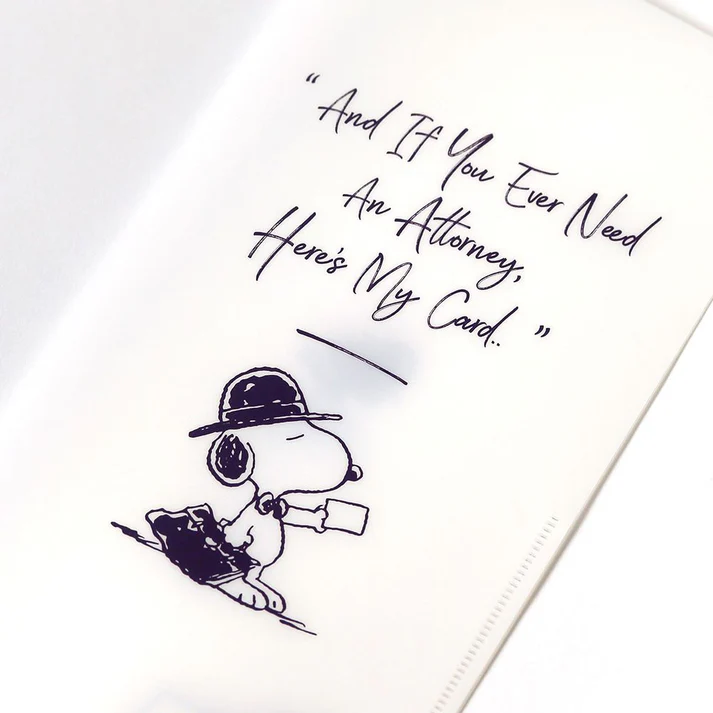 “And If You Ever Need
An Attorney,
Here's My Card.. ”